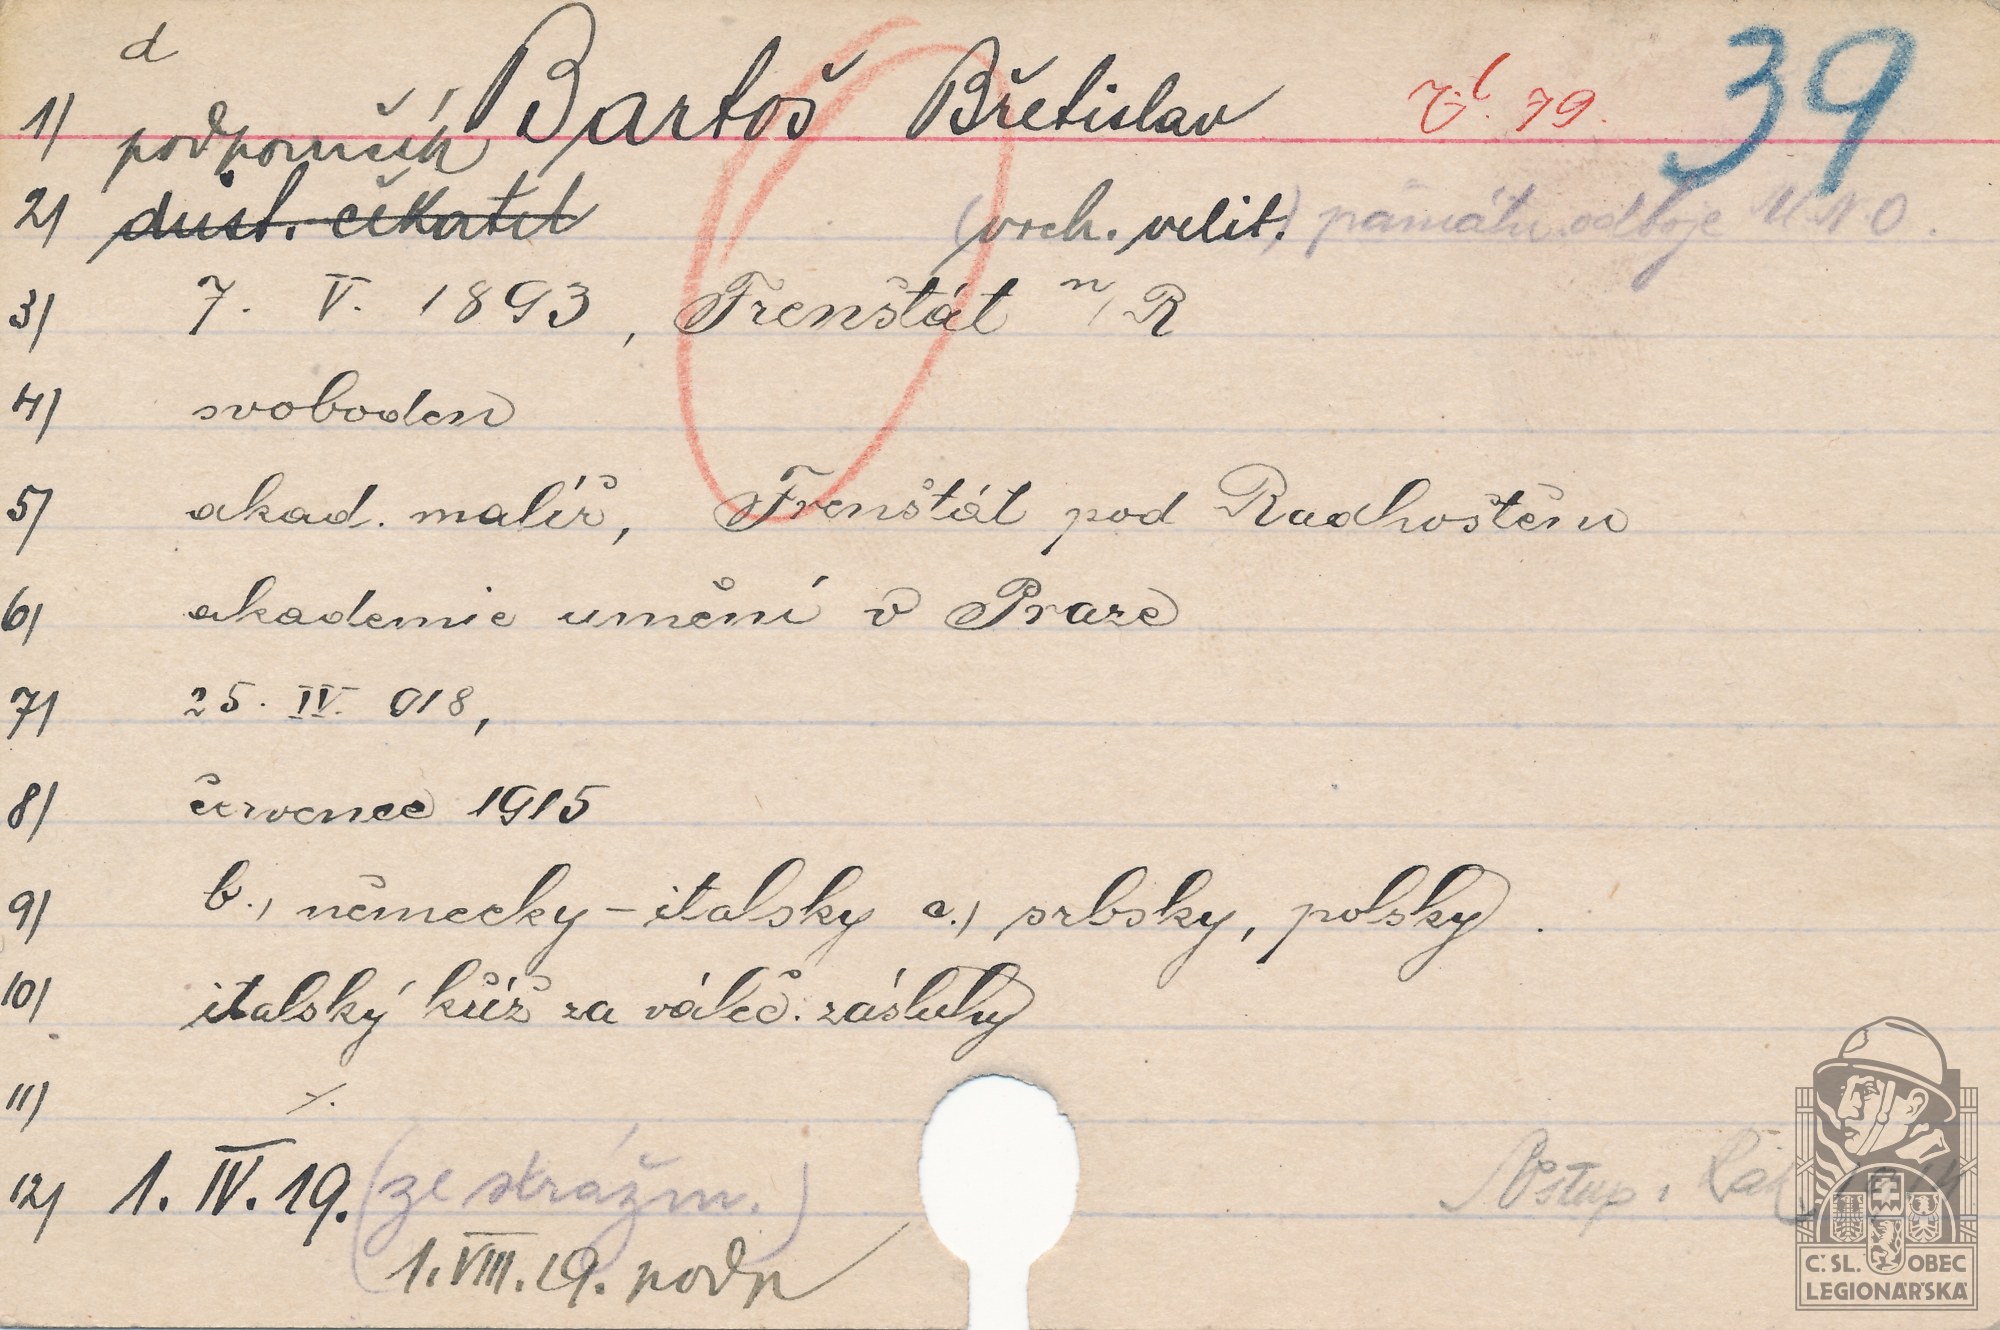 d
1) podporučík Bartoš Břetislav 79. 39
2) důst. čekatel (vrch. velit.) památn. odboje M.N.O.
3) 7. V. 1893, Frenštát n/R
4) svoboden
5) akad. malíř, Frenštát pod Radhoštěm
6) akademie umění v Praze
7) 25. IV. 918,
8) červenec 1915
9) b., německy – italsky c., srbsky, polsky.
10) italský kříž za váleč. zásluhy
11) ⁒
12) 1. IV. 19. (ze strážm.)
1. VIII. 19. podp
Č.SL. OBEC
LEGIONÁŘSKÁ